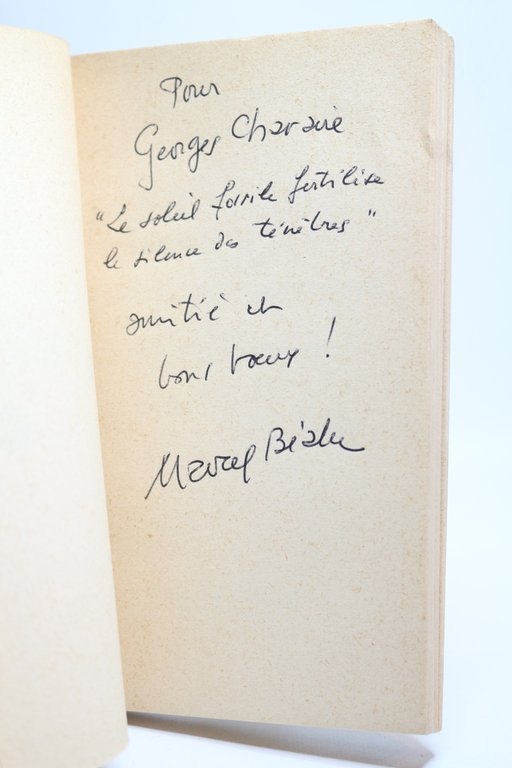 Pour
Georges Chavaire
"Le soleil fossile fertilise
le silence des ténèbres"
amitié et
bons voeux !
Marcel Béalu